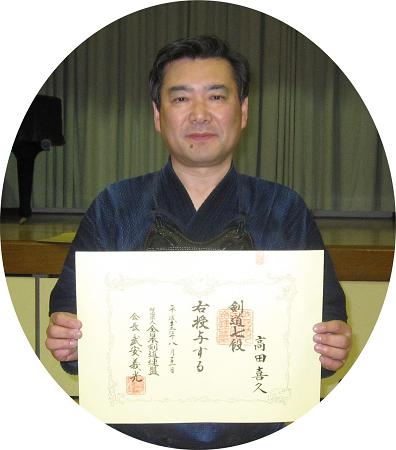 剣道七段
高田喜久
右授与する
平成 年八月 日
財団法人全日本剣道連盟
会長 武安義光